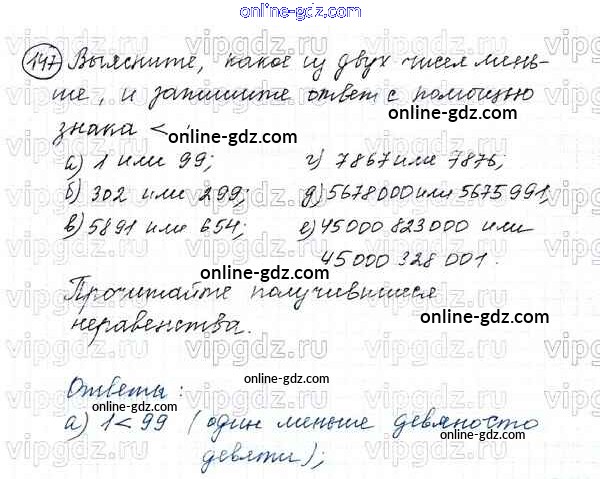 online-gdz.com
147 Выясните, какое из двух чисел мень-
ше, и запишите ответ с помощью
знака <
online-gdz.com
а) 1 или 99; г) 7867 или 7876;
б) 302 или 299; д) 5678000 или 5675991;
в) 5891 или 654; е) 45000 823000 или
45000 328 001.
online-gdz.com
Прочитайте получившиеся
online-gdz.com
неравенства.
Ответы:
online-gdz.com
а) 1 < 99 (один меньше девяносто
online-gdz.com
девяти);
vipgdz.ru